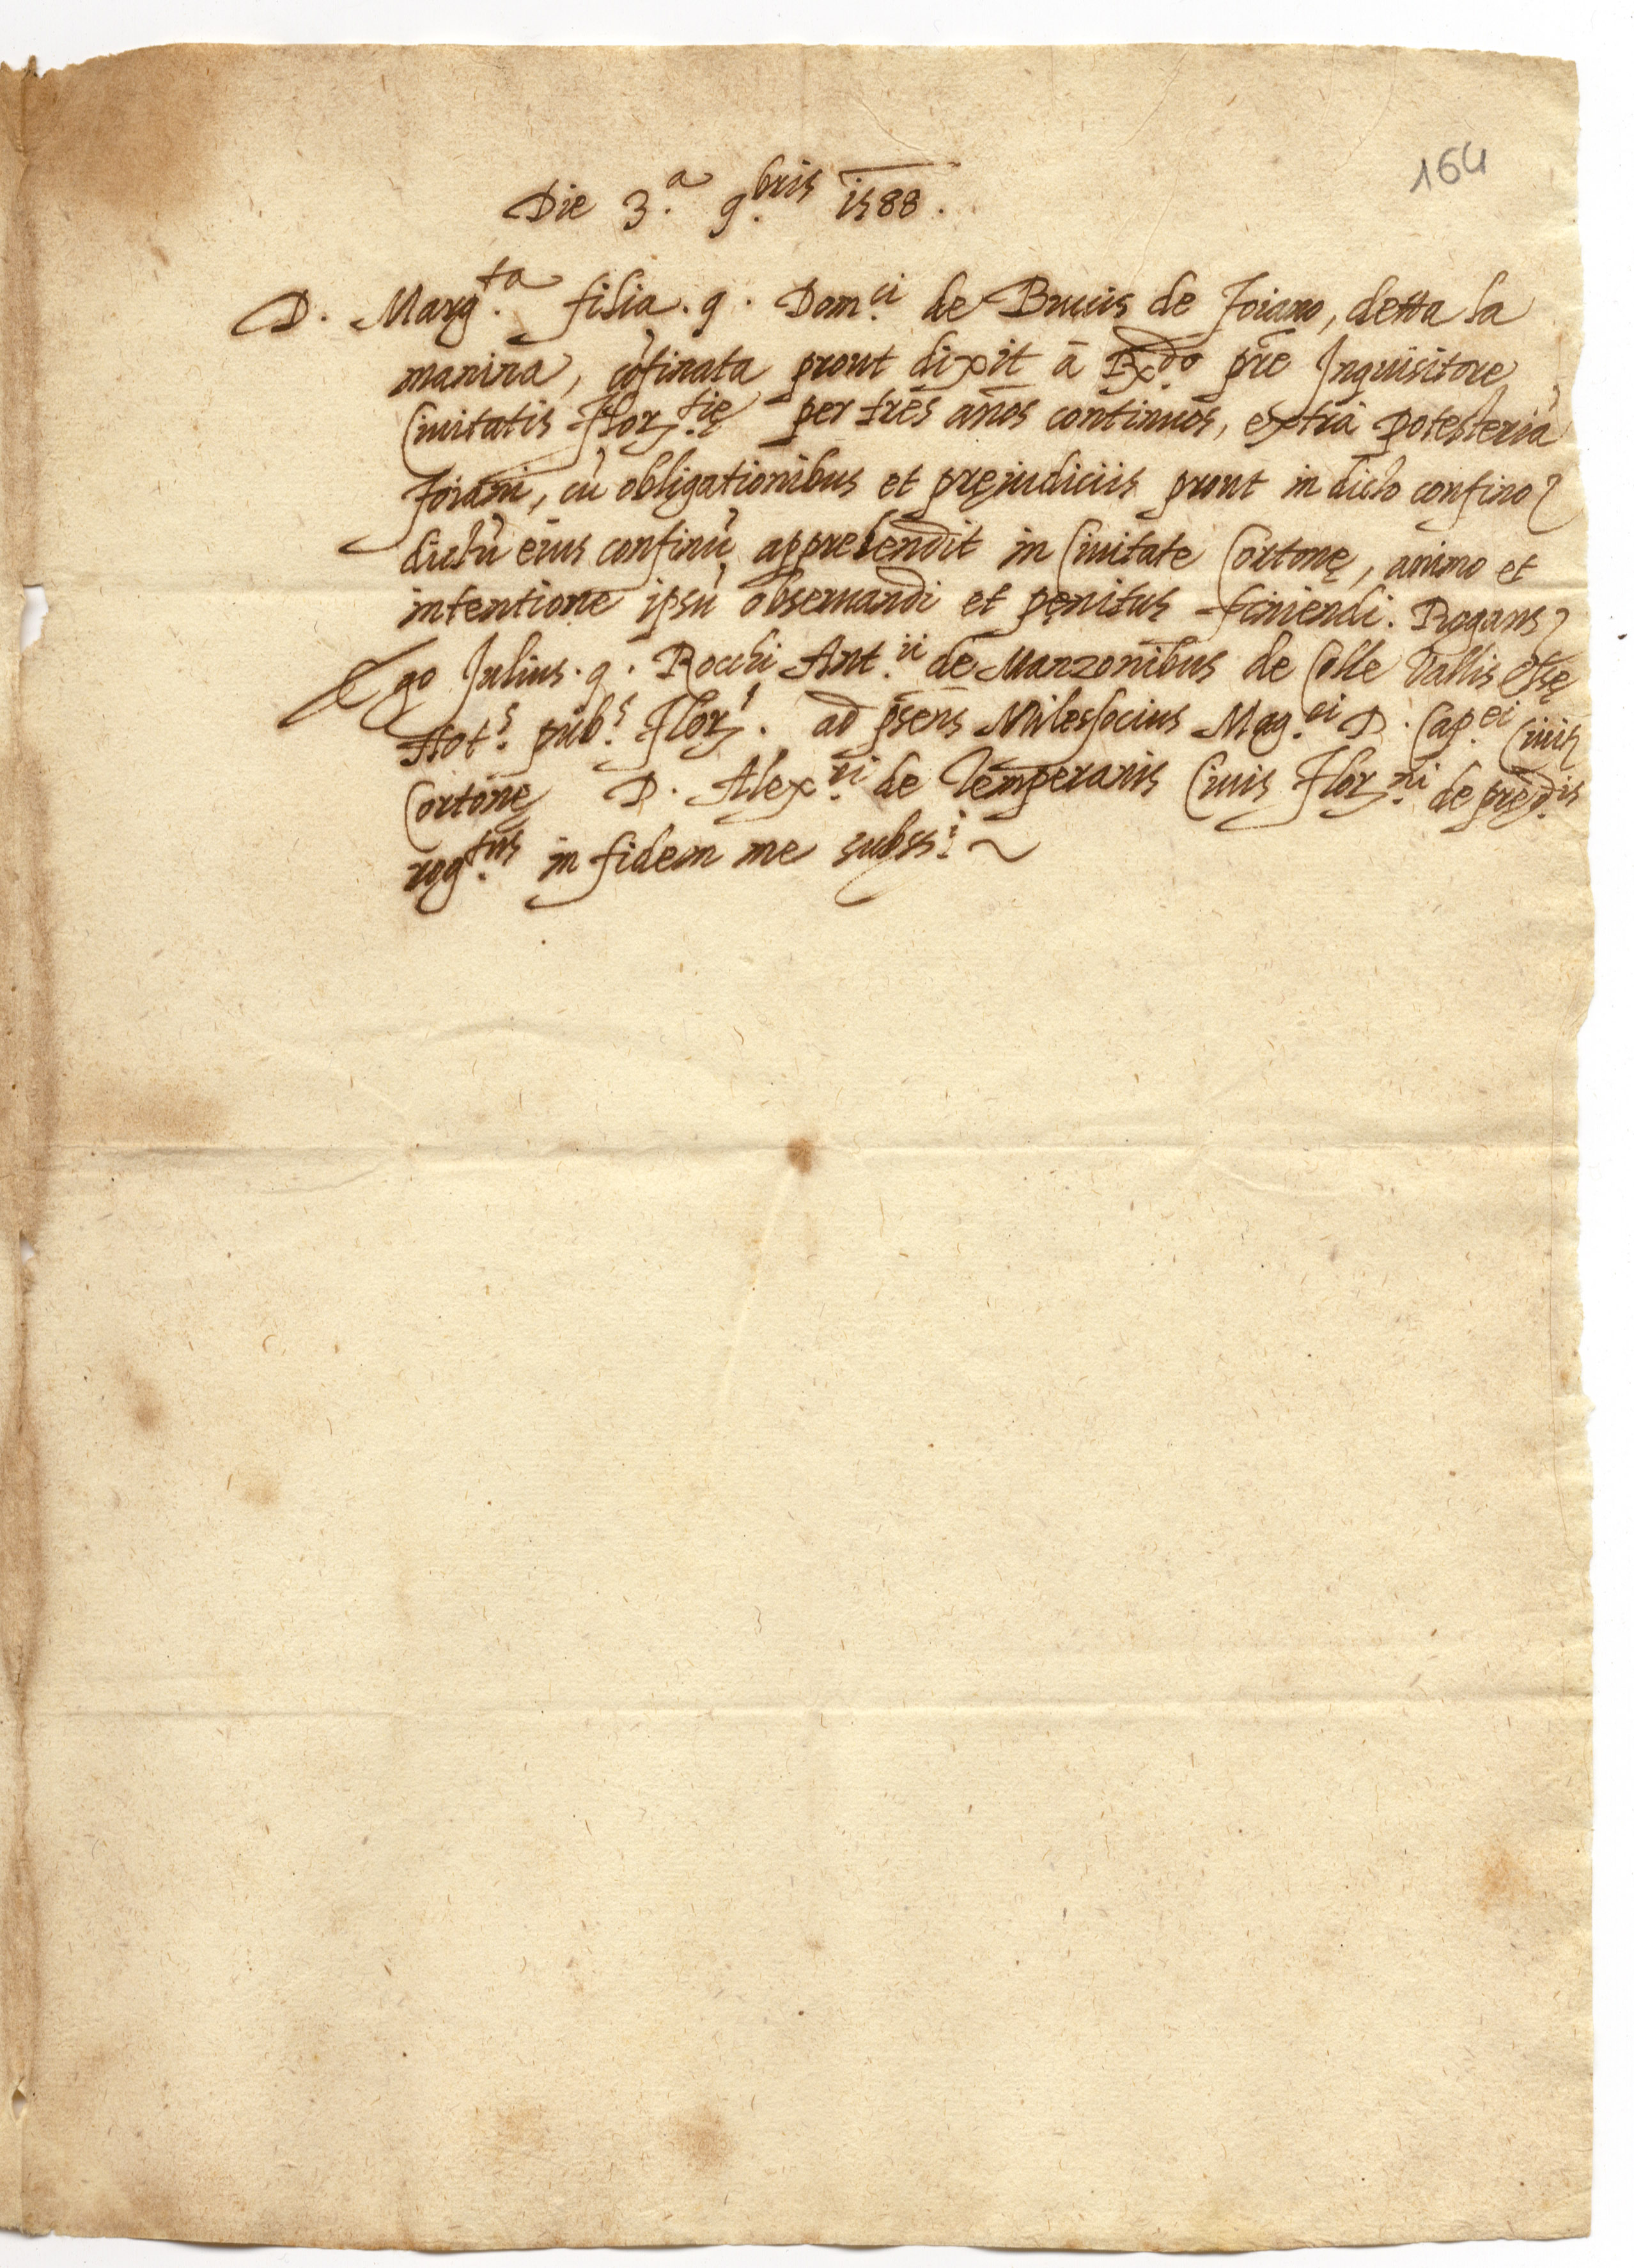 164
Die 3.ª 9.bris 1588.
D. Marg.ta filia. q. Dom.ci de Bruciis de Foiano, detta la
manina, cõfinata prout dixit ã R.do prẽ Inquisitore
Ciuitatis Flor.tię per tres años continuos, extra potesteriã
Foiani, cũ obligationibus et pręiudiciis prout in dicto confino
dictũ eius confinũ apprehendit in Ciuitate Cortonę, animo et
intentione ipsũ obseruandi et pęnitus finiendi. Rogans
Ego Julius. q. Rocchi Ant.ii de Manzonibus de Colle Vallis Elsę
Not.s pub.s Flor.s ad psens Milessocius Mag.ci D. Cap.ei Ciuit
Cortonę D. Alex.ri de Temperanis Ciuis Flor.ni de pręd.is
rog.tus in fidem me subss: